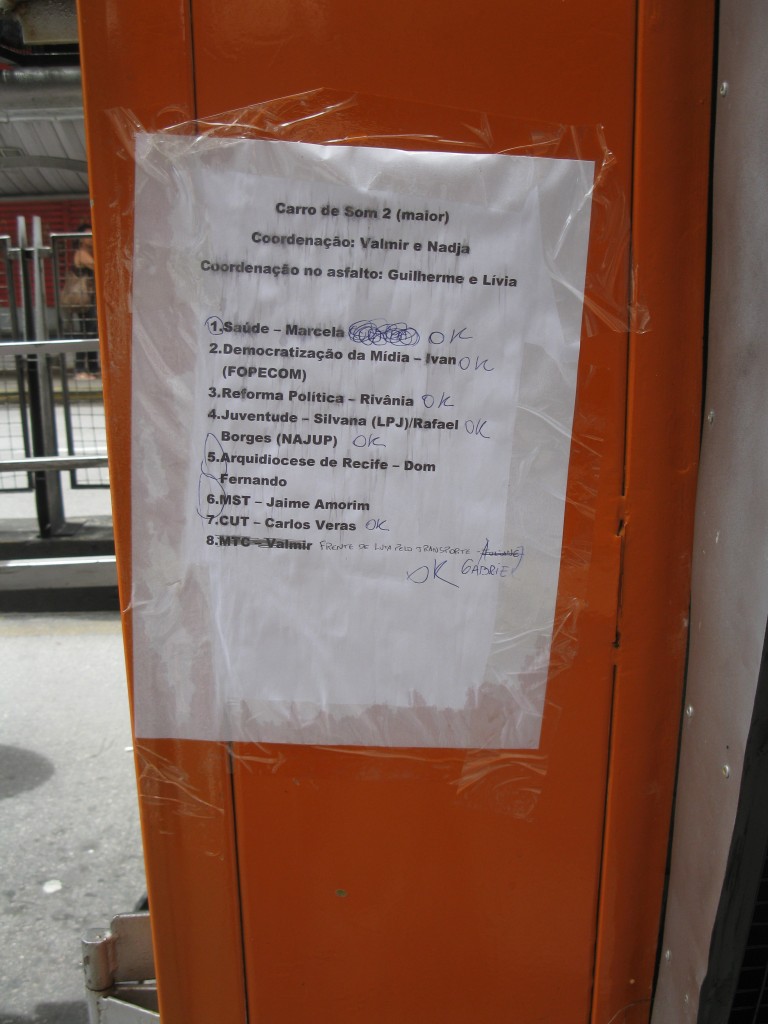 Carro de Som 2 (maior)
Coordenação: Valmir e Nadja
Coordenação no asfalto: Guilherme e Lívia
1.Saúde – Marcela OK
2.Democratização da Mídia – Ivan OK
(FOPECOM)
3.Reforma Política – Rivânia OK
4.Juventude – Silvana (LPJ)/Rafael OK
Borges (NAJUP) OK
5.Arquidiocese de Recife – Dom
Fernando
6.MST – Jaime Amorim
7.CUT – Carlos Veras OK
8.MTC – Valmir FRENTE DE LUTA PELO TRANSPORTE -
OK GABRIEL